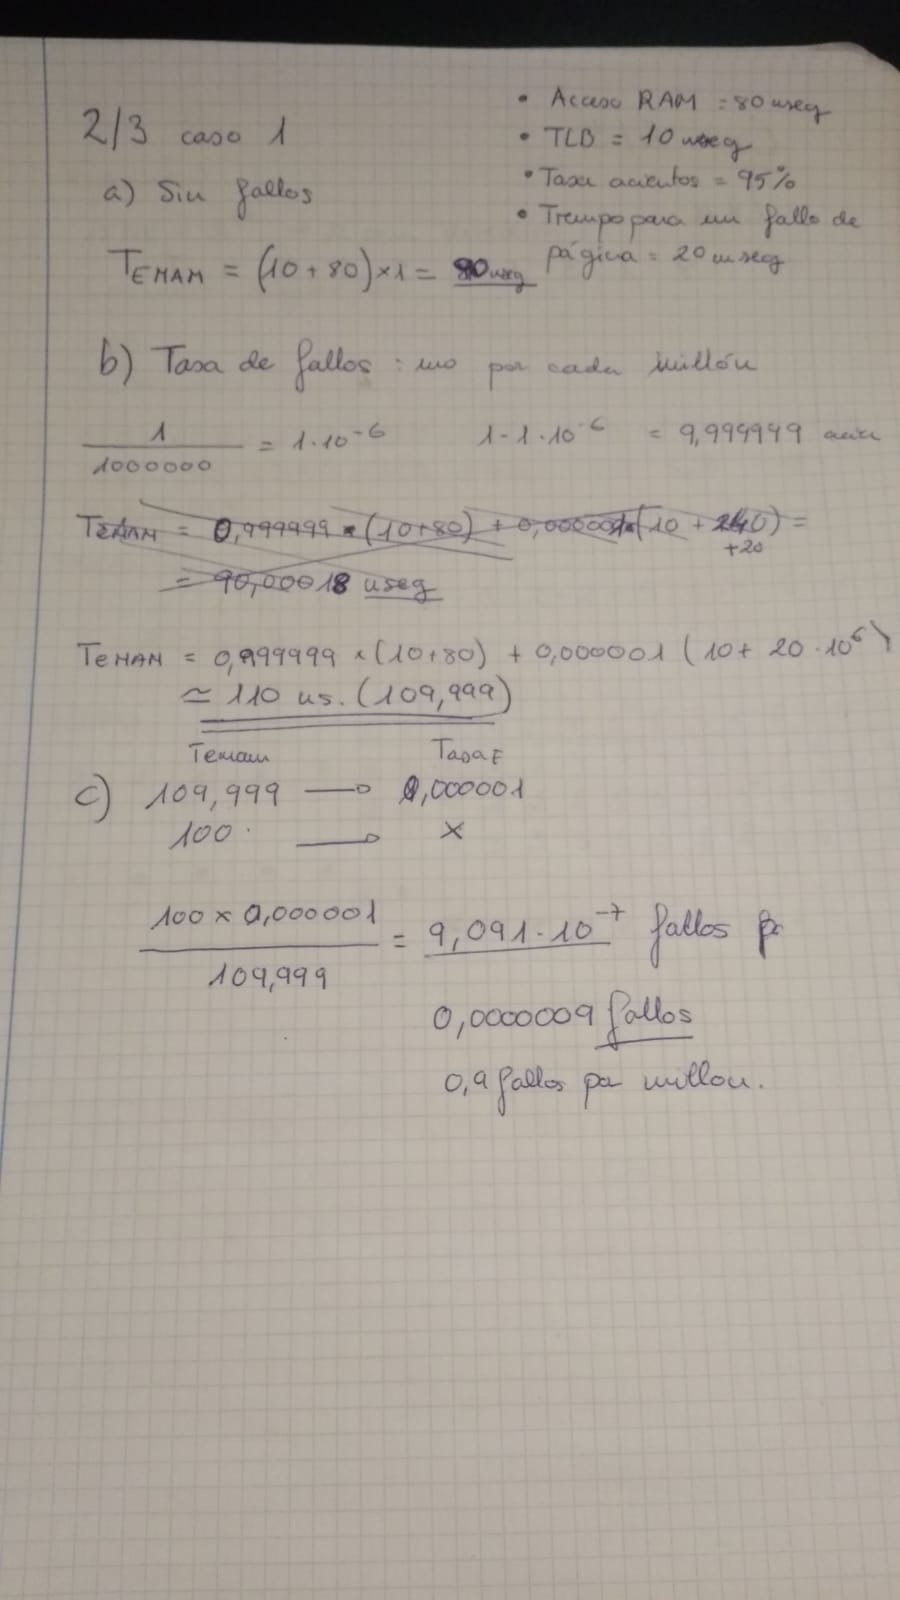 2/3 caso 1
• Acceso RAM = 80 nseg
• TLB = 10 nseg
• Tasa aciertos = 95%
• Tiempo para un fallo de
página = 20 mseg
a) Sin fallos
TEMAM = (10 + 80) × 1 = 90 nseg
b) Tasa de fallos : uno por cada millón
1 / 1000000 = 1·10⁻⁶ 1-1·10⁻⁶ = 9,999999
TEMAM = 0,999999 · (10+80) + 0,000001 · (10 + 240) =
+20
= 90,00018 nseg
TEMAM = 0,999999 × (10+80) + 0,000001 (10 + 20·10⁶)
≃ 110 ns. (109,999)
Temam TasaF
c) 109,999 → 0,000001
100 → x
100 × 0,000001 / 109,999 = 9,091·10⁻⁷ fallos
0,0000009 fallos
0,9 fallos por millón.